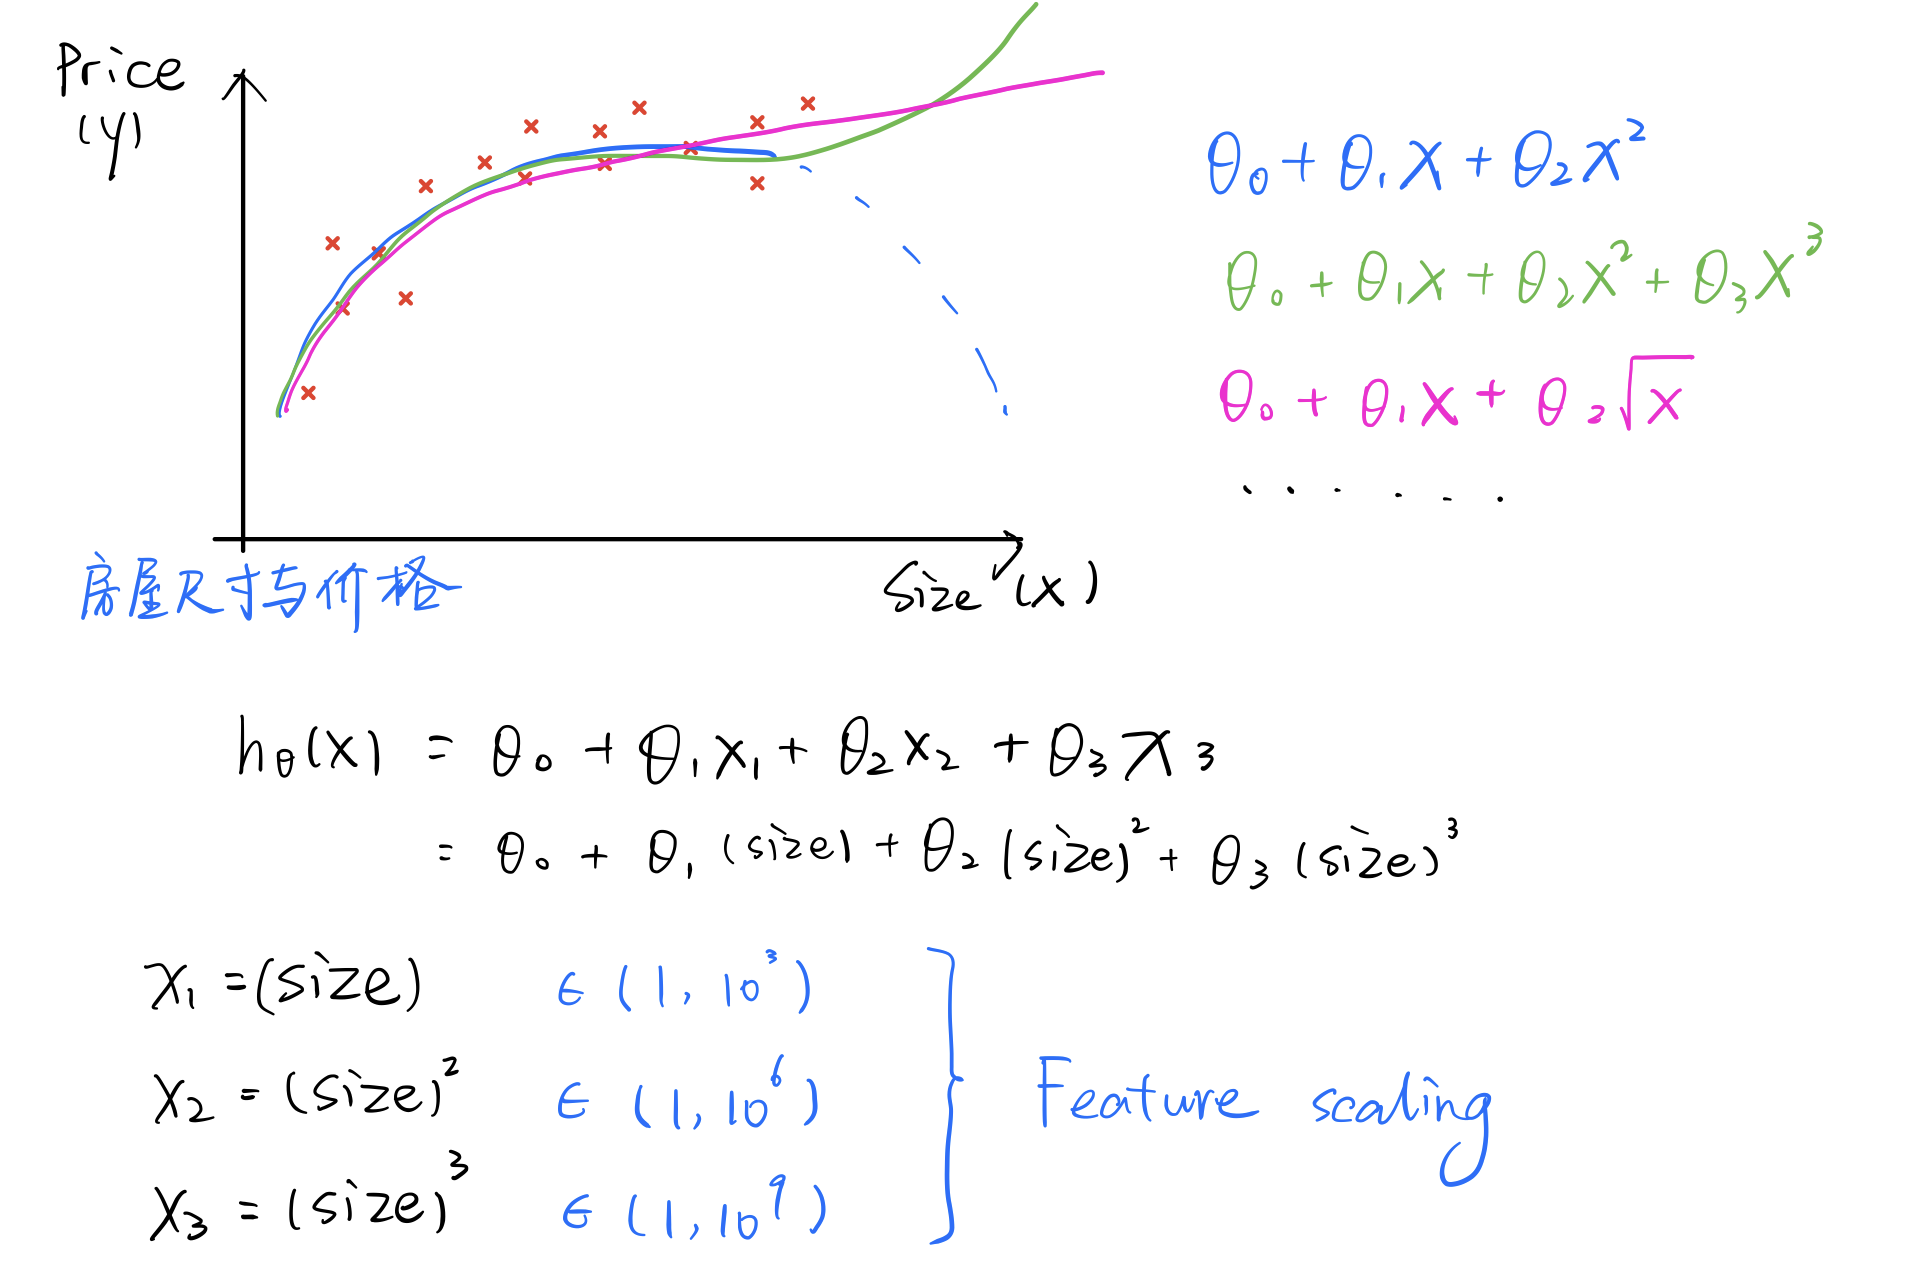 Price
(y)
θ₀ + θ₁x + θ₂x²
θ₀ + θ₁x + θ₂x² + θ₃x³
θ₀ + θ₁x + θ₂√x
. . . . . .
Size (x)
房屋尺寸与价格
hθ(x) = θ₀ + θ₁x₁ + θ₂x₂ + θ₃x₃
= θ₀ + θ₁(size) + θ₂(size)² + θ₃(size)³
x₁ = (size) ∈ (1, 10³)
x₂ = (size)² ∈ (1, 10⁶)
x₃ = (size)³ ∈ (1, 10⁹)
Feature scaling